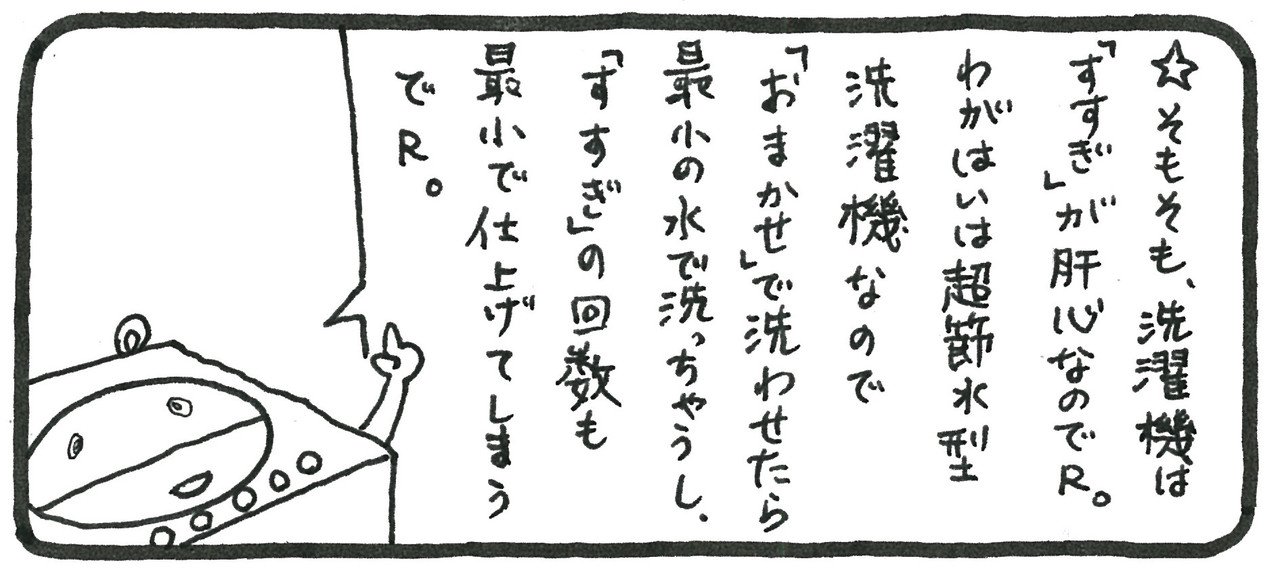 ☆そもそも、洗濯機は
「すすぎ」が肝心なのでR。
わがはいは超節水型
洗濯機なので
「おまかせ」で洗わせたら
最小の水で洗っちゃうし、
「すすぎ」の回数も
最小で仕上げてしまう
でR。